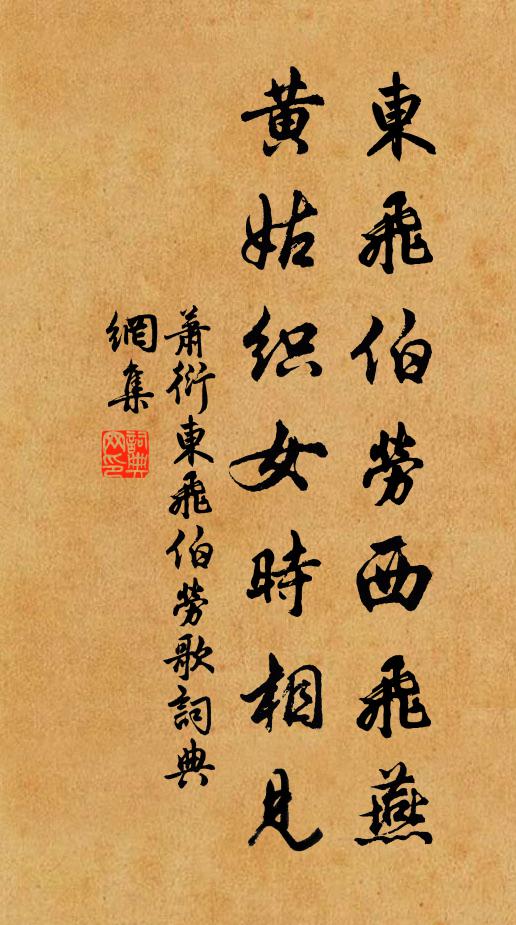 東飛伯勞西飛燕
黃姑织女時相見
萧衍東飛伯勞歌詞典
網集
詞典
网印